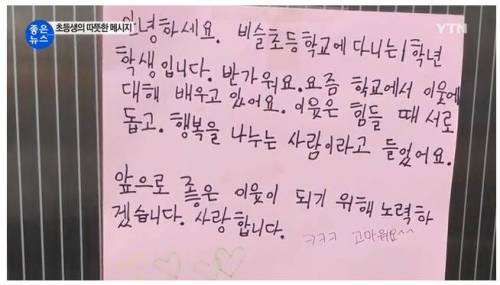 좋은
뉴스
초등생의 따뜻한 메시지
YTN
안녕하세요. 비슬초등학교에 다니는 1학년
학생입니다. 반가워요. 요즘 학교에서 이웃에
대해 배우고 있어요. 이웃은 힘들 때 서로
돕고. 행복을 나누는 사람이라고 들었어요.
앞으로 좋은 이웃이 되기 위해 노력하
겠습니다. 사랑합니다. ㅋㅋㅋ 고마워요^^